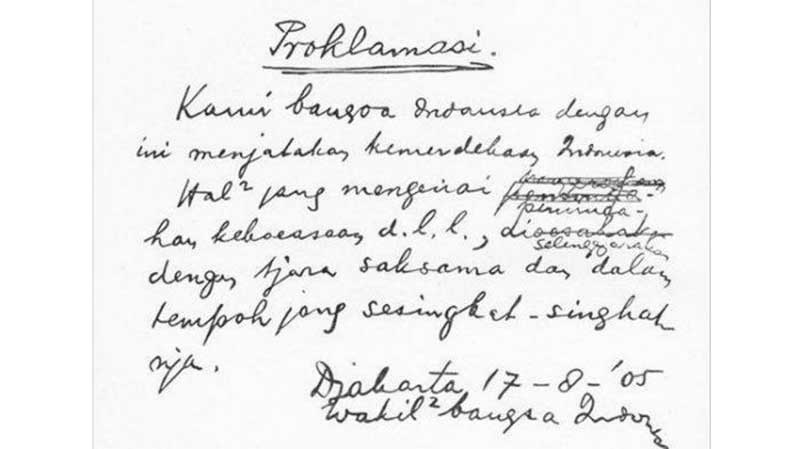 Proklamasi.
Kami bangsa Indonesia dengan
ini menjatakan kemerdekaan Indonesia.
Hal² jang mengenai
peminda-
han kekoeasaan d.l.l., di
selenggarakan
dengan tjara saksama dan dalam
tempoh jang sesingkat-singkat
nja.
Djakarta 17 - 8 - '05
Wakil² bangsa Indones